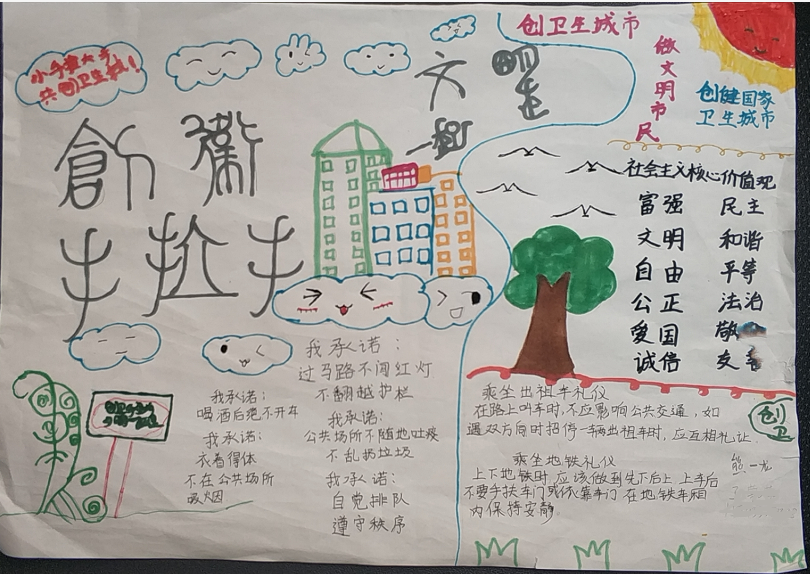 小手拉大手
共创卫生城!
創衛
手拉手
文明
一起走
创卫生城市
做文明市民
创健国家
卫生城市
社会主义核心价值观
富强 民主
文明 和谐
自由 平等
公正 法治
爱国 敬
诚信 友善
我承诺:
过马路不闯红灯
不翻越护栏
我承诺:
公共场所不随地吐痰
不乱扔垃圾
我承诺:
自觉排队
遵守秩序
我承诺:
喝酒后绝不开车
我承诺:
衣着得体
不在公共场所
吸烟
乘坐出租车礼仪
在路上叫车时,不应影响公共交通,如
遇双方同时招停一辆出租车时,应互相礼让.
乘坐地铁礼仪
上下地铁时应该做到先下后上,上车后
不要手扶车门或依靠车门在地铁车厢
内保持安静.
创卫